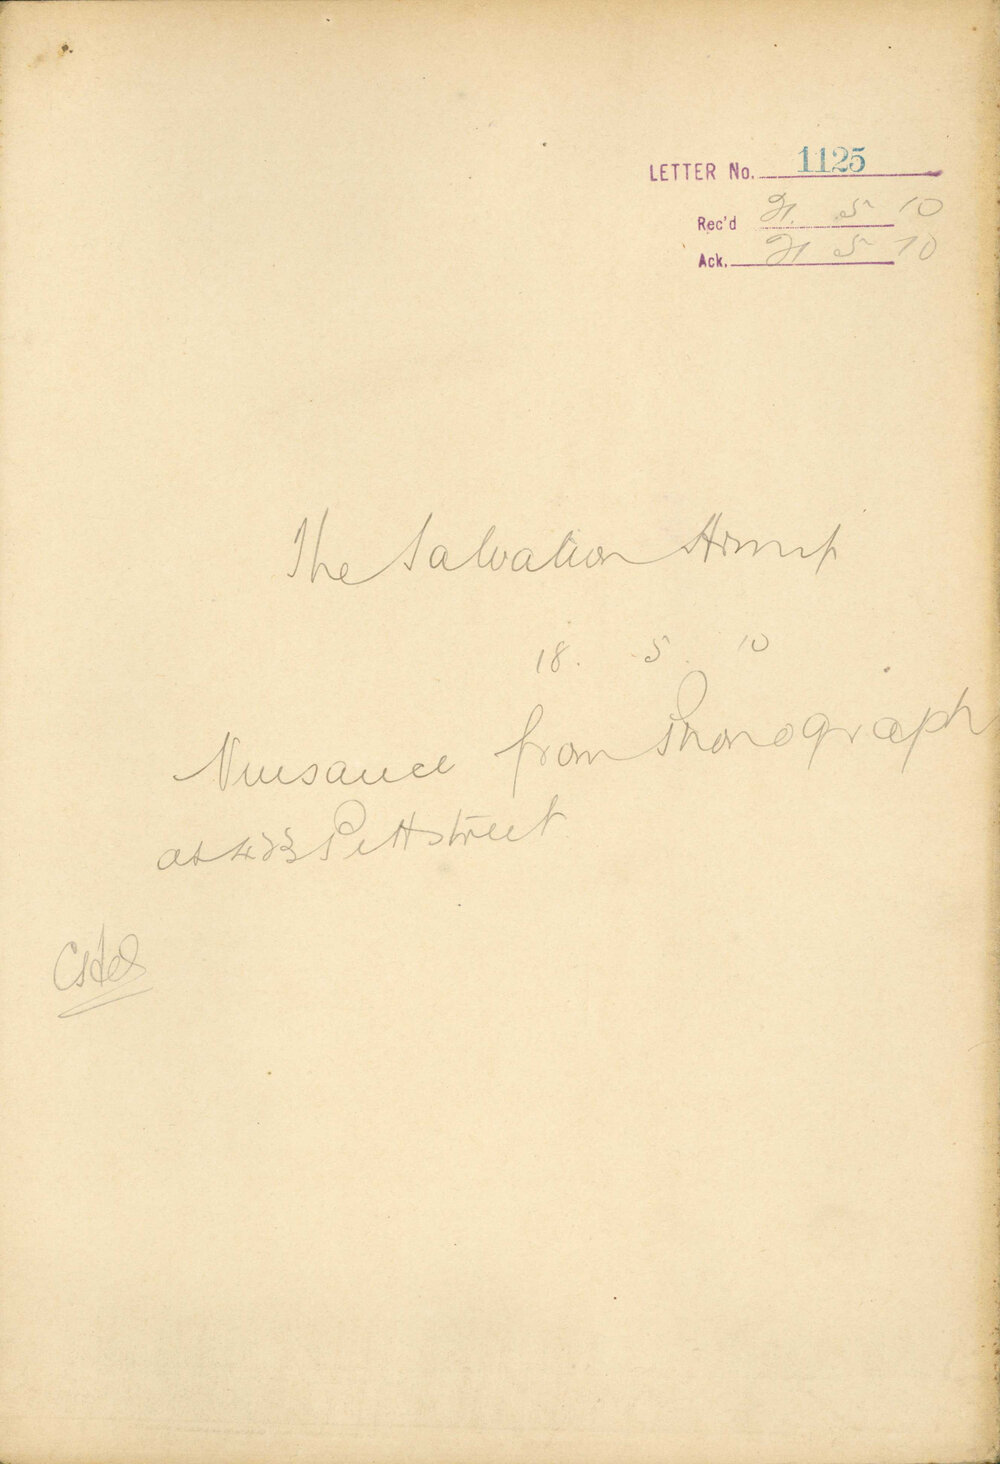 LETTER No. 1125
Rec'd 21. 5 10
Ack. 21 5 10
The Salvation Army
18. 5. 10
Nuisance from Phonograph
at 433 Pitt Street